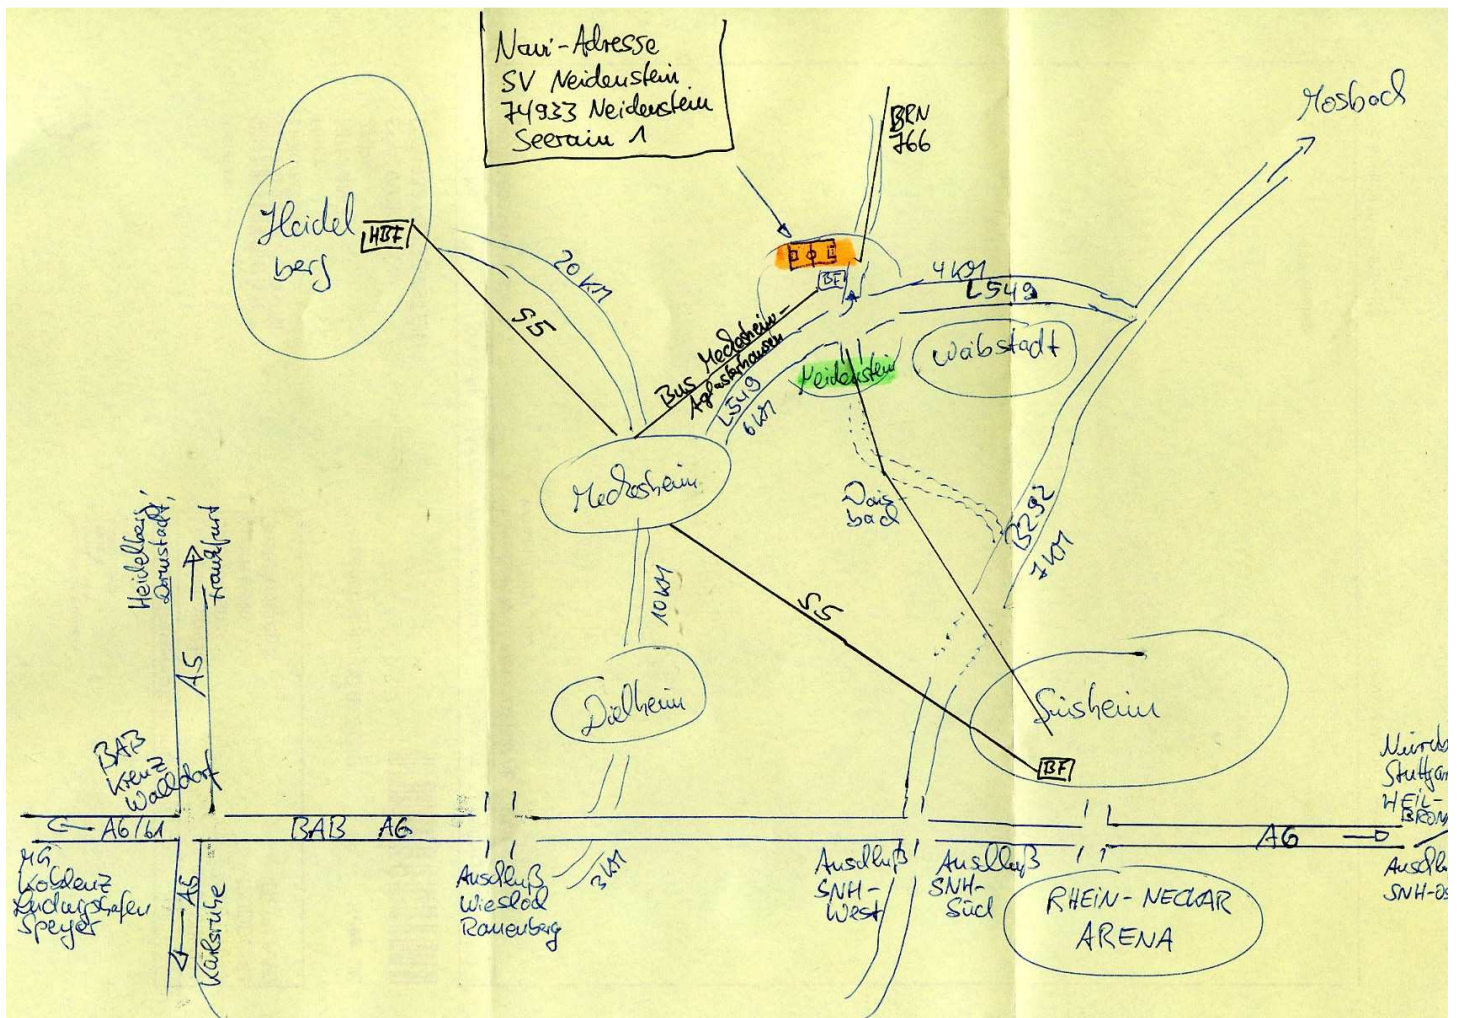 Navi-Adresse
SV Neidenstein
74933 Neidenstein
Seerain 1
BRN
766
Mosbach
Heidel
berg
HBF
20 KM
S5
BF
4 KM
L549
Waibstadt
Bus Meckesheim-
Aglasterhausen
L549
6 KM
Neidenstein
Meckesheim
Dais-
bach
B292
7 KM
Heidelberg,
Darmstadt,
Frankfurt
A5
10 KM
S5
Dielheim
Sinsheim
BF
BAB
Kreuz
Walldorf
A6/61
BAB A6
A6
Stuttgar
HEIL-
BRONN
MA
Koblenz
Ludwigshafen
Speyer
A5
Karlsruhe
Anschluß
Wiesloch
Rauenberg
3 KM
Anschluß
SNH-
West
Anschluß
SNH-
Süd
RHEIN-NECKAR
ARENA
Anschl
SNH-Os